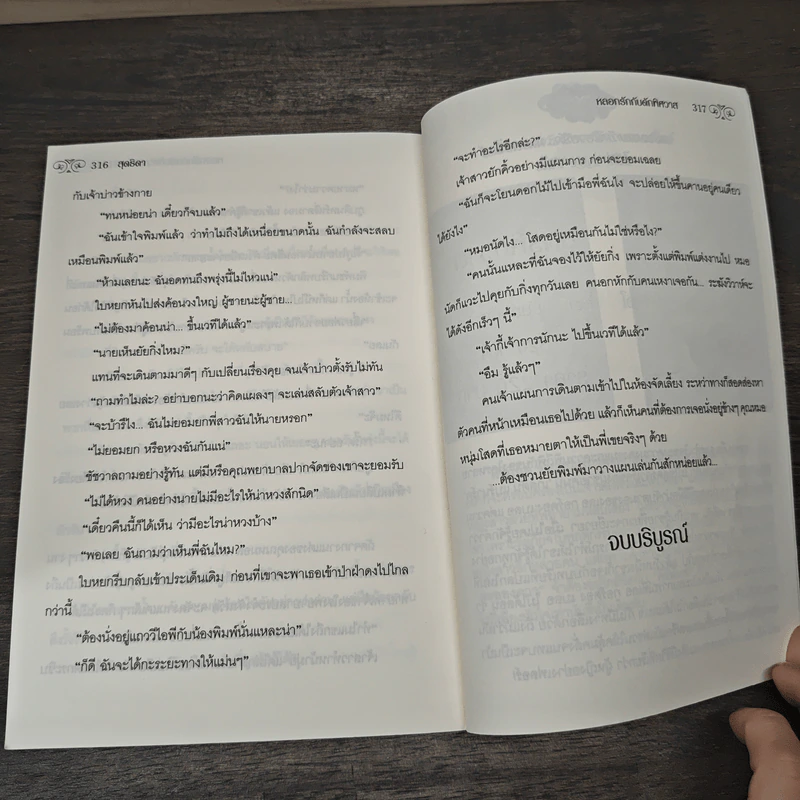 316 สุดธิดา
กับเจ้าบ่าวข้างกาย
“ทนหน่อยน่า เดี๋ยวก็จบแล้ว”
“ฉันเข้าใจพิมพ์แล้ว ว่าทำไมถึงได้เหนื่อยขนาดนั้น ฉันกำลังจะสลบ
เหมือนพิมพ์แล้ว”
“ห้ามเลยนะ ฉันอดทนถึงพรุ่งนี้ไม่ไหวแน่”
ใบหยกหันไปส่งค้อนวงใหญ่ ผู้ชายนะผู้ชาย...
“ไม่ต้องมาค้อนน่า... ขึ้นเวทีได้แล้ว”
“นายเห็นยัยกิ่งไหม?”
แทนที่จะเดินตามมาดีๆ กับเปลี่ยนเรื่องคุย จนเจ้าบ่าวตั้งรับไม่ทัน
“ถามทำไมล่ะ? อย่าบอกนะว่าคิดแผลงๆ จะเล่นสลับตัวเจ้าสาว”
“จะบ้ารึไง... ฉันไม่ยอมยกพี่สาวฉันให้นายหรอก”
“ไม่ยอมยก หรือหวงฉันกันแน่”
ชัชวาลถามอย่างรู้ทัน แต่มีหรือคุณพยาบาลปากจัดของเขาจะยอมรับ
“ไม่ได้หวง คนอย่างนายไม่มีอะไรให้น่าหวงสักนิด”
“เดี๋ยวคืนนี้ก็ได้เห็น ว่ามีอะไรน่าหวงบ้าง”
“พอเลย ฉันถามว่าเห็นพี่ฉันไหม?”
ใบหยกรีบกลับเข้าประเด็นเดิม ก่อนที่เขาจะพาเธอเข้าป่าฝ่าดงไปไกล
กว่านี้
“ต้องนั่งอยู่แถววีไอพีกับน้องพิมพ์นั่นแหละน่า”
“ก็ดี ฉันจะได้กะระยะทางให้แม่นๆ”
หลอกรักกับดักพิศวาส 317
“จะทำอะไรอีกล่ะ?”
เจ้าสาวยักคิ้วอย่างมีแผนการ ก่อนจะยอมเฉลย
“ฉันก็จะโยนดอกไม้ไปเข้ามือพี่ฉันไง จะปล่อยให้ขึ้นคานอยู่คนเดียว
ได้ยังไง”
“หมอนัดไง... โสดอยู่เหมือนกันไม่ใช่หรือไง?”
“คนนั้นแหละที่ฉันจองไว้ให้ยัยกิ่ง เพราะตั้งแต่พิมพ์แต่งงานไป หมอ
นัดก็แวะไปคุยกับกิ่งทุกวันเลย คนอกหักกับคนเหงาเจอกัน... ระฆังวิวาห์จะ
ได้ดังอีกเร็วๆ นี้”
“เจ้ากี้เจ้าการนักนะ ไปขึ้นเวทีได้แล้ว”
“อืม รู้แล้วๆ”
คนเจ้าแผนการเดินตามเข้าไปในห้องจัดเลี้ยง ระหว่างทางก็สอดส่องหา
ตัวคนที่หน้าเหมือนเธอไปด้วย แล้วก็เห็นคนที่ต้องการเจอนั่งอยู่ข้างๆ คุณหมอ
หนุ่มโสดที่เธอหมายตาให้เป็นพี่เขยจริงๆ ด้วย
...ต้องชวนยัยพิมพ์มาวางแผนเล่นกันสักหน่อยแล้ว...
จบบริบูรณ์